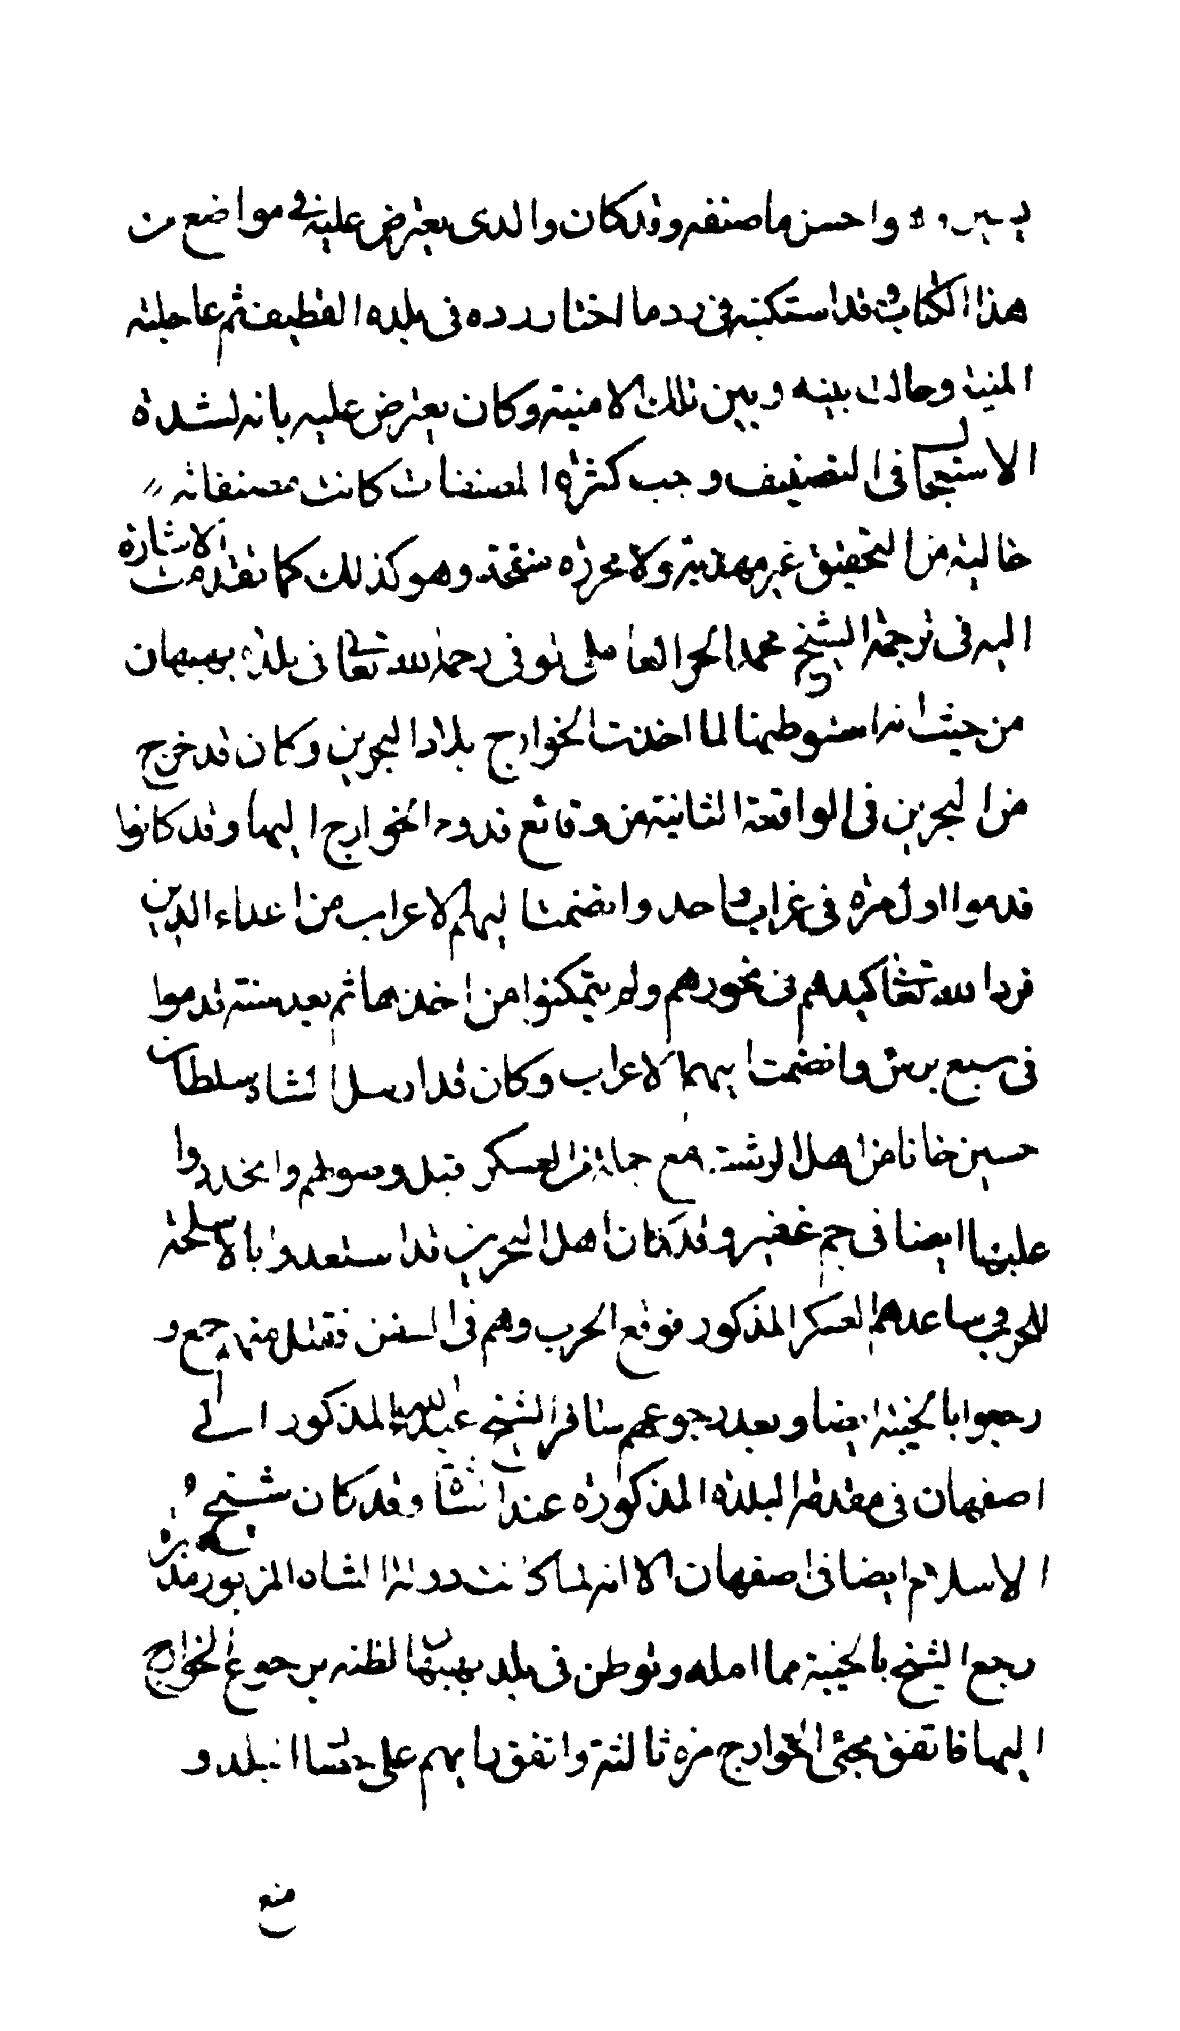 واحسن ما صنفه وقد كان والدى يعترض عليه فى مواضع من
هذا الكتاب وقد استكتبه فى رد ما اختار رده فى بلده القطيف ثم عاجلته
المنية وحالت بينه وبين تلك الامنية وكان يعترض عليه بانه لشدة
الاستعجال فى التصنيف وحب كثرة المصنفات كانت مصنفاته
خالية من التحقيق غير مهذبة ولا محررة منقحة وهو كذلك كما تقدمت الاشارة
اليه فى ترجمة الشيخ محمد الحر العاملى توفى رحمه الله تعالى فى بلدة بهبهان
من حيث انه استوطنها لما اخذت الخوارج بلاد البحرين وكان قد خرج
من البحرين فى الواقعة الثانية من وقائع قدوم الخوارج اليها وقد كانوا
قدموا اول مرة فى غراب واحد وانضمت اليهم الاعراب من اعداء الدين
فرد الله تعالى كيدهم فى نحورهم ولم يتمكنوا من اخذها ثم بعد سنة قدموا
فى سبع برش وانضمت اليهم الاعراب وكان قد ارسل الشاه سلطان
حسين خانا من اهل الرشت مع جملة من العسكر قبل وصولهم وانحدروا
عليها ايضا فى جم غفير وقد كان اهل البحرين قد استعدوا بالاسلحة
للحرب وساعدهم العسكر المذكور فوقع الحرب وهم فى السفن فقتل منهم جمع و
رجعوا بالخيبة ايضا وبعد رجوعهم سافر الشيخ عبد الله المذكور الى
اصفهان فى مقدمة البلدة المذكورة عند الشاه وقد كان شيخ
الاسلام ايضا فى اصفهان الا انه لما كانت دولة الشاه المزبور مدبرة
رجع الشيخ بالخيبة مما امله وتوطن فى بلد بهبهان لظنه رجوع الخوارج
اليها فاتفق مجئ الخوارج مرة ثالثة واتفق رايهم على البلد و
منع